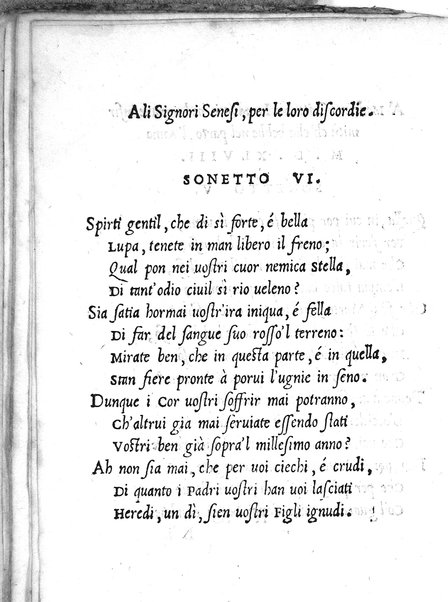 A li Signori Senesi, per le loro discordie.
SONETTO VI.
Spirti gentil, che di sì forte, é bella
Lupa, tenete in man libero il freno;
Qual pon nei uostri cuor nemica Stella,
Di tant'odio ciuil sì rio ueleno?
Sia satia hormai uostr'ira iniqua, é fella
Di far del sangue suo rosso'l terreno:
Mirate ben, che in questa parte, é in quella,
Stan fiere pronte à porui l'ugnie in seno.
Dunque i Cor uostri soffrir mai potranno,
Ch'altrui gia mai seruiate essendo stati
Vostri ben già sopra'l millesimo anno?
Ah non sia mai, che per uoi ciechi, é crudi,
Di quanto i Padri uostri han uoi lasciati
Heredi, un dì, sien uostri Figli ignudi.